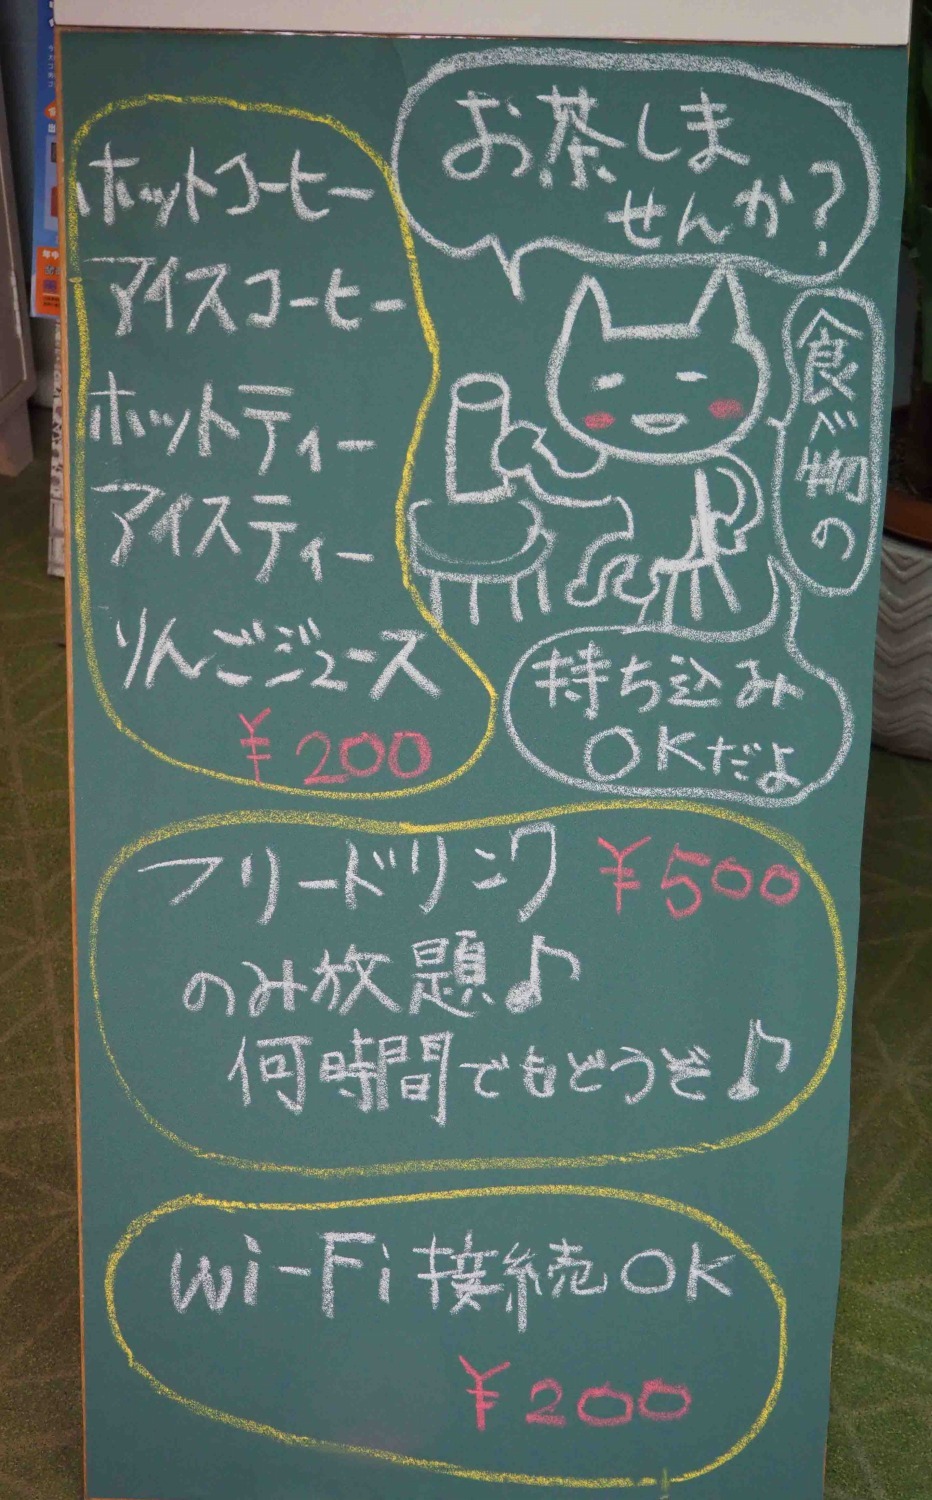 お茶しま
せんか?
ホットコーヒー
アイスコーヒー
ホットティー
アイスティー
りんごジュース
¥200
食べ物の
持ち込み
OKだよ
フリードリンク ¥500
のみ放題♪
何時間でもどうぞ♪
Wi-Fi接続OK
¥200